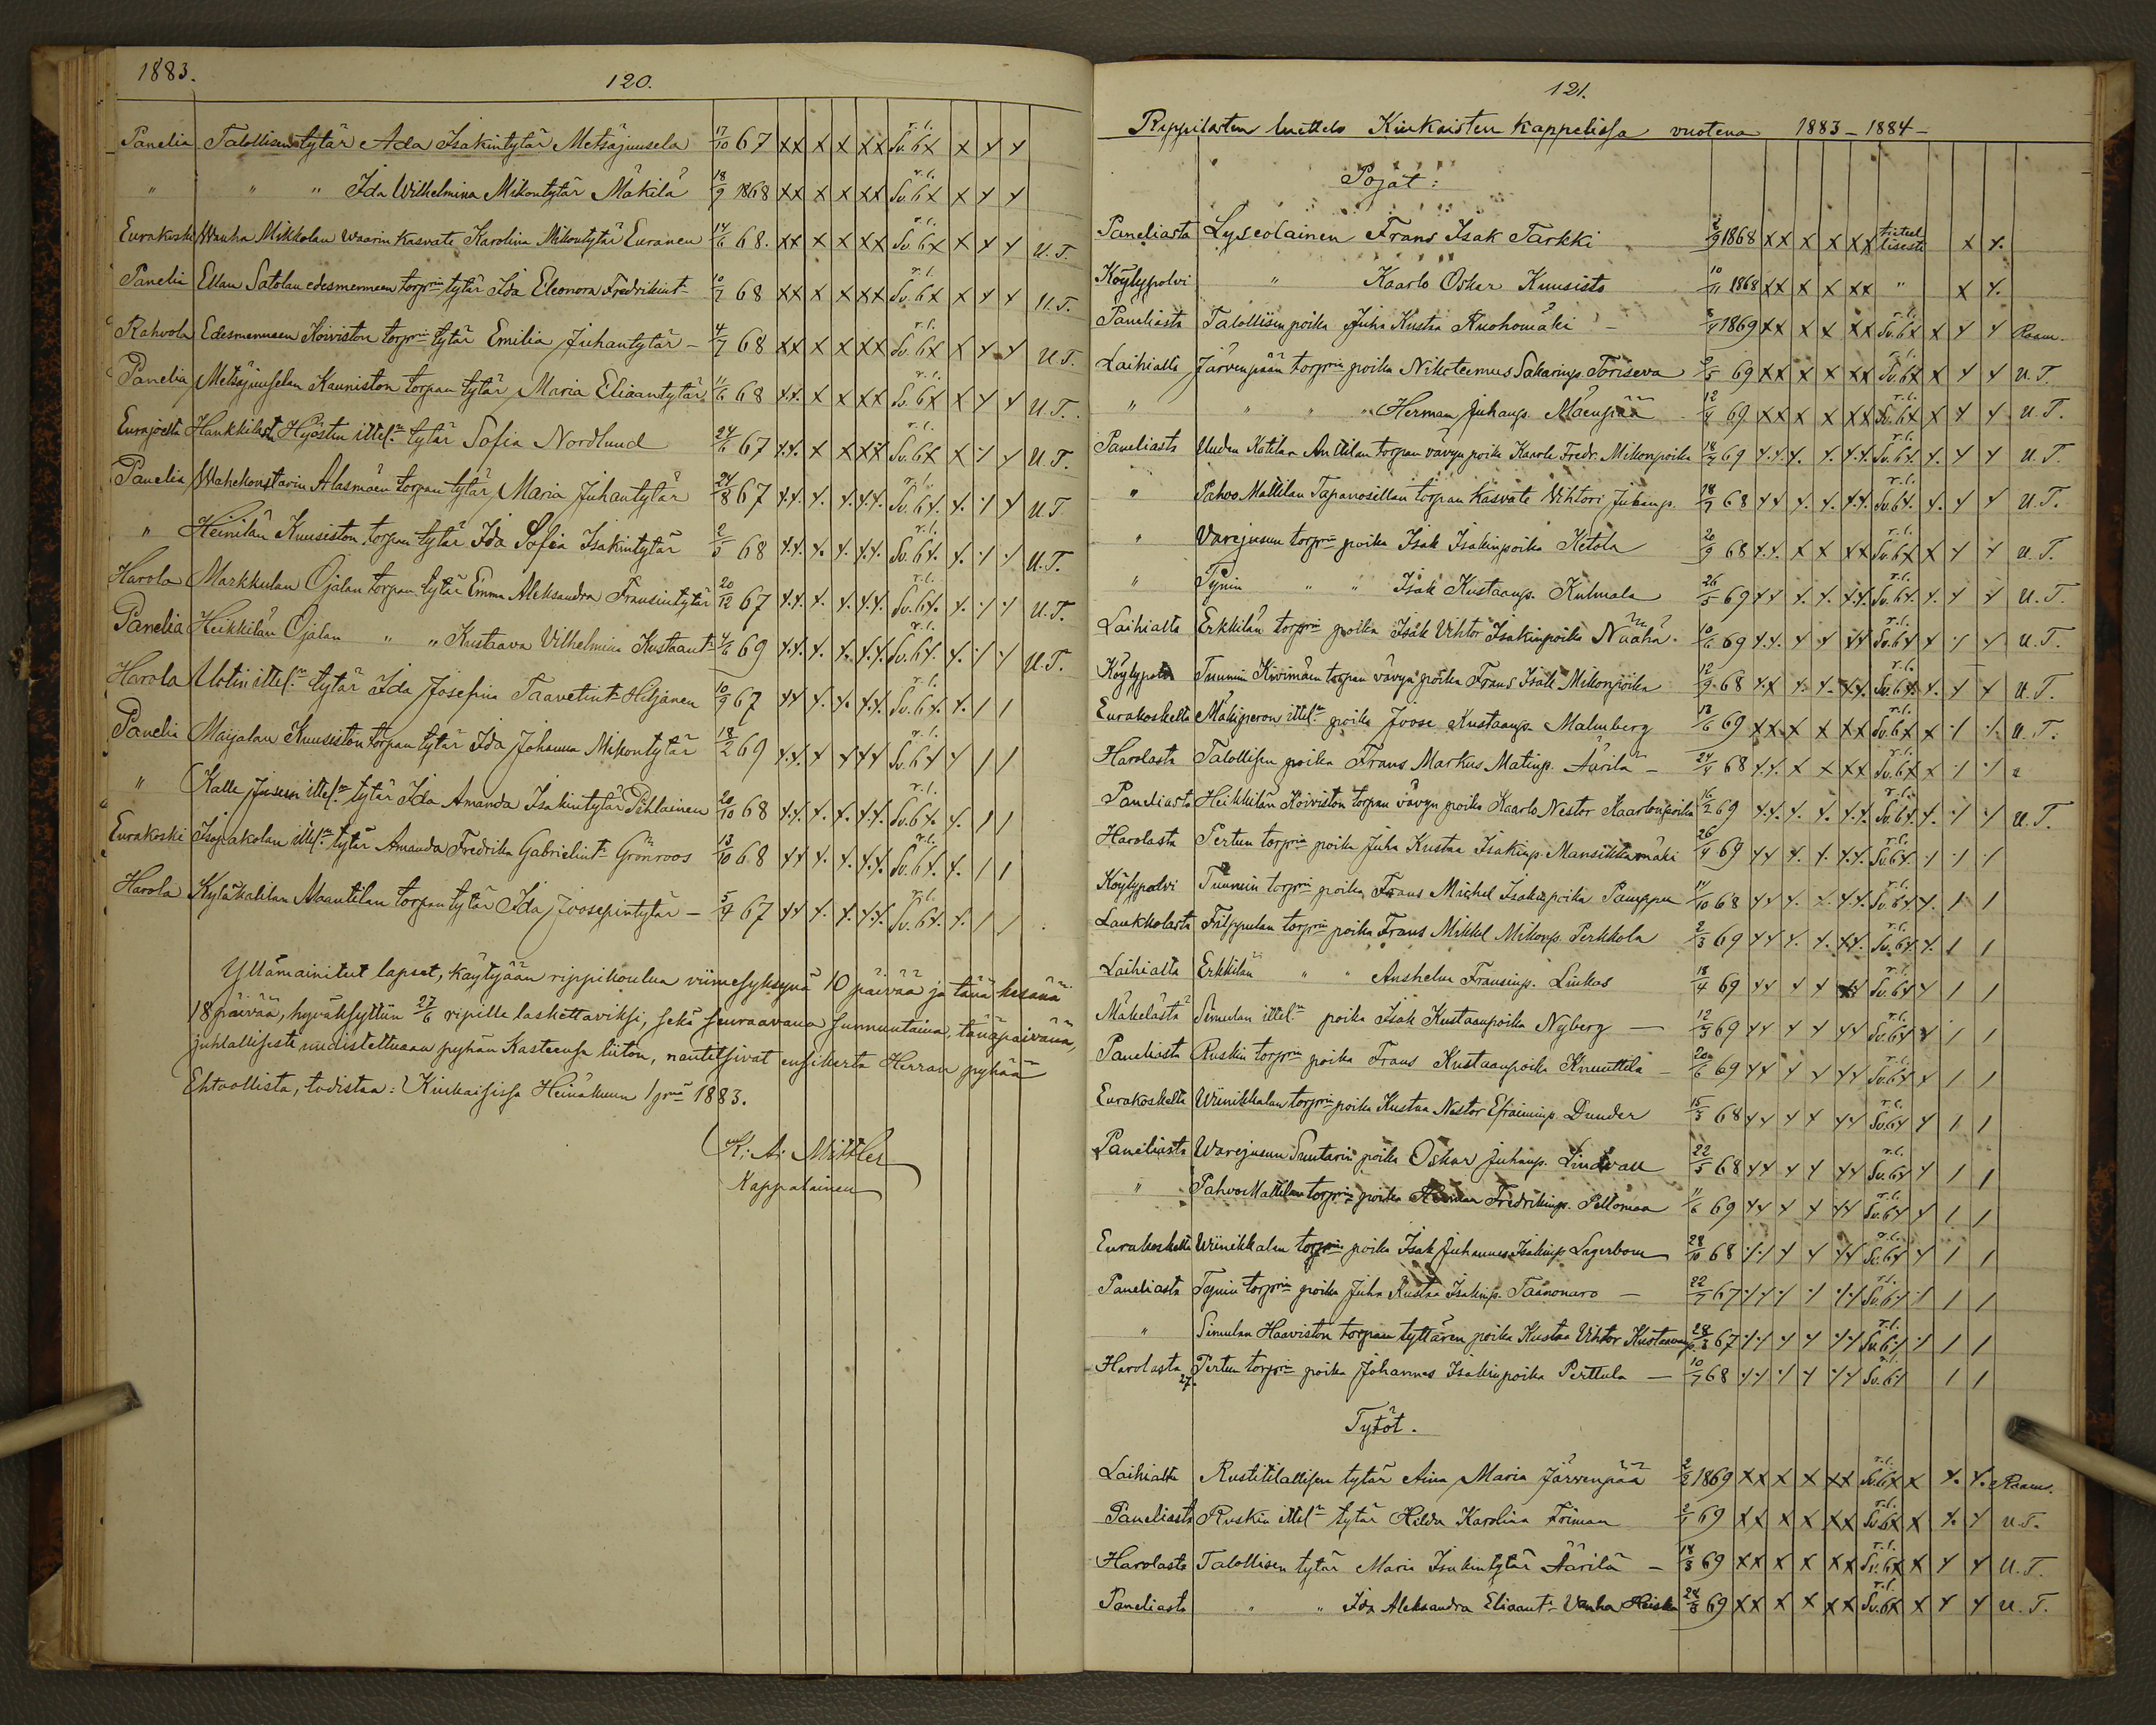 1883.
120.
Panelia Talollisen tytär Ada Isakintytär Metsäjuusela 17/10 67 xx x x xx r.l. Sv.6x x x x
" " " Ida Wilhelmina Mikontytär Mäkilä 18/9 1868 xx x x xx r.l. Sv.6x x x x
Eurakoski Wanha Mikkolan waarin kasvate Karolina Mikontytär Euranen 14/6 68. xx x x xx r.l. Sv.6x x x x U.T.
Panelia Ellan Satolan edesmenneen torprin tytär Ida Eleonora Fredrikint. 10/7 68 xx x x xx r.l. Sv.6x x x x U.T.
Rahvola Edesmenneen Koiviston torprin tytär Emilia Juhantytär – 4/7 68 xx x x xx r.l. Sv.6x x x x U.T.
Panelia Metsäjuuselan Kauniston torpan tytär Maria Eliaantytär 11/6 68 x.x. x x xx r.l. Sv.6x x x x U.T.
Eurajoelta Hankkilasta Hyöstin ittel:n tytär Sofia Nordlund 24/6 67 x.x. x x xx r.l. Sv.6x x x x U.T.
Panelia Wahekonstarin Alasmäen torpan tytär Maria Juhantytär 24/8 67 x.x. x. x. x.x. r.l. Sv.6x. x. x x U.T
" Heinilän Kuusiston torpan tytär Ida Sofia Isakintytär 2/5 68 x.x. x. x. x.x. r.l. Sv.6x. x. x x U.T.
Harola Markkulan Ojalan torpan tytär Emma Aleksandra Fransintytär 20/12 67 x.x. x. x. x.x. r.l. Sv.6x. x. x x U.T.
Panelia Heikkilän Ojalan " " Kustaava Vilhelmina Kustaant. 4/6 69 x.x. x. x. x.x. r.l. Sv.6x. x. x x U.T.
Harola Uotin ittel:n tytär Ida Josefina Taavetint. Hiljanen 10/9 67 xx x. x. x.x. r.l. Sv.6x. x. / /
Panelia Maijalan Kuusiston torpan tytär Ida Johanna Mikontytär 18/2 69 x.x. x x xx r.l. Sv.6x x / /
" Kalle Jusen ittel:n tytär Ida Amanda Isakintytär Pihlainen 20/10 68 x.x. x. x. x.x. r.l. Sv.6x. x. / /
Eurakoski Isojaakolan ittl:n tytär Amanda Fredrika Gabrielint. Grönroos 13/10 68 xx x. x. x.x. r.l. Sv.6x. x. / /
Harola Kyläkalilan Maantilan torpan tytär Ida Joosepintytär – 5/4 67 xx x. x. x.x. r.l. Sv.6x. x. / /
Yllämainitut lapset, käytyään rippikoulua viimesyksynä 10 päivää ja tänä kesänä
18 päivää, hyväksyttiin 27/6 ripille laskettaviksi, sekä seuraavana sunnuntaina, tänäpäivänä,
juhlallisesti uudistettuaan pyhän Kasteensa liiton, nautitsivat ensikerta Herran pyhää
Ehtoollista, todistaa: Kiukaisissa Heinäkuun 1 prnä 1883.
K: A: Mittler
Kappalainen
121.
Rippilasten luettelo Kiukaisten kappelissa vuotena 1883–1884–
Pojat:
Paneliasta Lyseolainen Frans Isak Tarkki 2/9 1868 xx x x xx tieteellisesti x x.
Köylypolvi " Kaarlo Oskar Kuusisto 10/11 1868 xx x x xx " x x.
Paneliasta Talollisen poika Juha Kustaa Ruohomäki – 1869 xx x x xx r.l. Sv.6x x x x Raam.
Laihialta Järvenpään torprin poika Nikoteemus Sakarinp. Toriseva 69 xx x x xx r.l. Sv.6x x x x U.T.
" " " " Herman Juhanp. Mäenpää 12/4 69 xx x x xx r.l. Sv.6x x x x U.T.
Paneliasta Uuden Kotilan Anttilan torpan vävyn poika Kaarle Fredr. Mikonpoika 18/7 69 x.x. x. x. x.x. r.l. Sv.6x. x. x x U.T.
" Pahvo Mattilan Tapanosillan torpan kasvate Vihtori Juhanp. 28/7 68 xx x. x. x.x. r.l. Sv.6x. x. x x U.T.
" Varejusun torprin poika Isak Isakinpoika Ketola 20/9 68 x.x. x x xx r.l. Sv.6x x x x U.T.
" Tynin " " Isak Kustaanp. Kulmala 26/5 69 xx x. x. x.x. r.l. Sv.6x. x. x x U.T.
Laihialta Erkkilän torprin poika Isak Vihtor Isakinpoika Naaha. 10/6 69 x.x. x x xx r.l. Sv.6x x x x U.T.
Köylypolvi Tuumin Kivimäen torpan vävyn poika Frans Isak Mikonpoika 12/9 68 x.x x. x. x.x. r.l. Sv.6x. x. x x U.T.
Eurakoskelta Mäkiperon ittel:n poika Joose Kustaanp. Malmberg 18/6 69 xx x x xx r.l. Sv.6x x x x. U.T.
Harolasta Talollisen poika Frans Markus Matinp. Äärilä – 24/4 68 x.x. x x xx r.l. Sv.6x x x x
Paneliasta Heikkilän Koiviston torpan vävyn poika Kaarlo Nestor Kaarlonpoika 16/2 69 x.x. x. x. x.x. r.l. Sv.6x. x. x x U.T.
Harolasta Pertun torprin poika Juha Kustaa Isakinp. Mansikkamäki 26/4 69 xx x. x. x.x. r.l. Sv.6x. x x x
Köylypolvi Tuumin torprin poika Frans Michel Isakinpoika Pamppu 14/10 68 xx x. x. x.x. r.l. Sv.6x x. / /
Laukkolasta Filppulan torprin poika Frans Mikkel Mikonp. Perkkola 2/3 69 xx x. x. xx. r.l. Sv.6x x. / /
Laihialta Erkkilän " " Anshelm Fransinp. Linkas 18/4 69 xx x x xx r.l. Sv.6x x / /
Mäkelästä Simulan ittel:n poika Isak Kustaanpoika Nyberg — 12/5 69 xx x x xx r.l. Sv.6x x / /
Paneliasta Ruskin torprin poika Frans Kustaanpoika Knuuttila – 20/6 69 xx x x xx r.l. Sv.6x x / /
Eurakoskelta Wiinikkalan torprin poika Kustaa Nestor Efraiminp. Dunder 15/5 68 xx x x xx r.l. Sv.6x x / /
Paneliasta Warejusun Suutarin poika Oskar Juhanp. Lindvall 22/5 68 xx x x xx r.l. Sv.6x x / /
" Pahvo Mattilan torprin poika Herman Fredrikinp. Peltomaa 11/6 69 xx x x xx r.l. Sv.6x x / /
Eurakoskelta Wiinikkalan torprin poika Isak Juhannes Isakinp. Lagerbom 28/10 68 xx x x xx r.l. Sv.6x x / /
Paneliasta Tynin torprin poika Juha Kustaa Isakinp. Taanonaro – 22/7 67 xx x x xx r.l. Sv.6x x / /
" Simulan Haaviston torpan tyttären poika Kustaa Vihtor Kustaanp. 28/3 67 xx x x xx r.l. Sv.6x x / /
Harolasta Pertun torprin poika Johannes Isakinpoika Perttula — 10/7 68 xx x x xx r.l. Sv.6x / /
27.
Tytöt.
Laihialta Rustitilallisen tytär Aina Maria Järvenpää 2/2 1869 xx x x xx r.l. Sv.6x x x. x. Raam.
Paneliasta Ruskin ittel:n tytär Hilda Karolina Friman 2/1 69 xx x x xx r.l. Sv.6x x x. x U.T.
Harolasta Talollisen tytär Maria Isakintytär Äärilä – 18/3 69 xx x x xx r.l. Sv.6x x x x U.T.
Paneliasta " " Ida Aleksandra Eliaant. Vanha Heiska 24/8 69 xx x x xx r.l. Sv.6x x x x U.T.